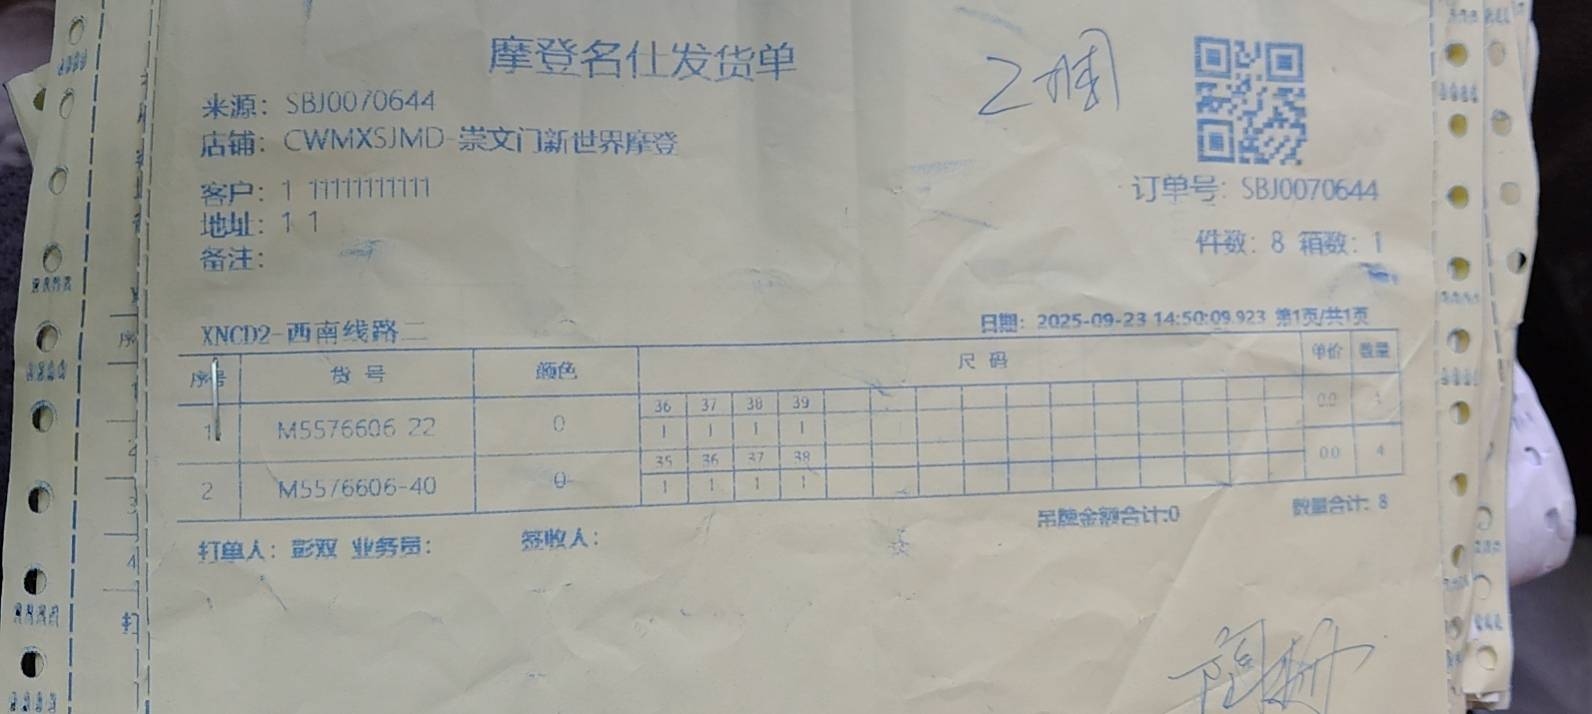 摩登名仕发货单
来源: SBJ0070644
店铺: CWMXSJMD-崇文门新世界摩登
客户: 1 11111111111
地址: 1 1
备注:
订单号: SBJ0070644
件数: 8 箱数: 1
XNCD2-西南线路二
日期: 2025-09-23 14:50:09.923 第1页/共1页
序号 货号 颜色 尺码 单价 数量
36 37 38 39
1 M5576606-22 0 1 1 1 1 0.0
35 36 37 38
2 M5576606-40 0 1 1 1 1 0.0 4
吊牌金额合计:0 数量合计: 8
打单人: 彭双 业务员: 签收人: